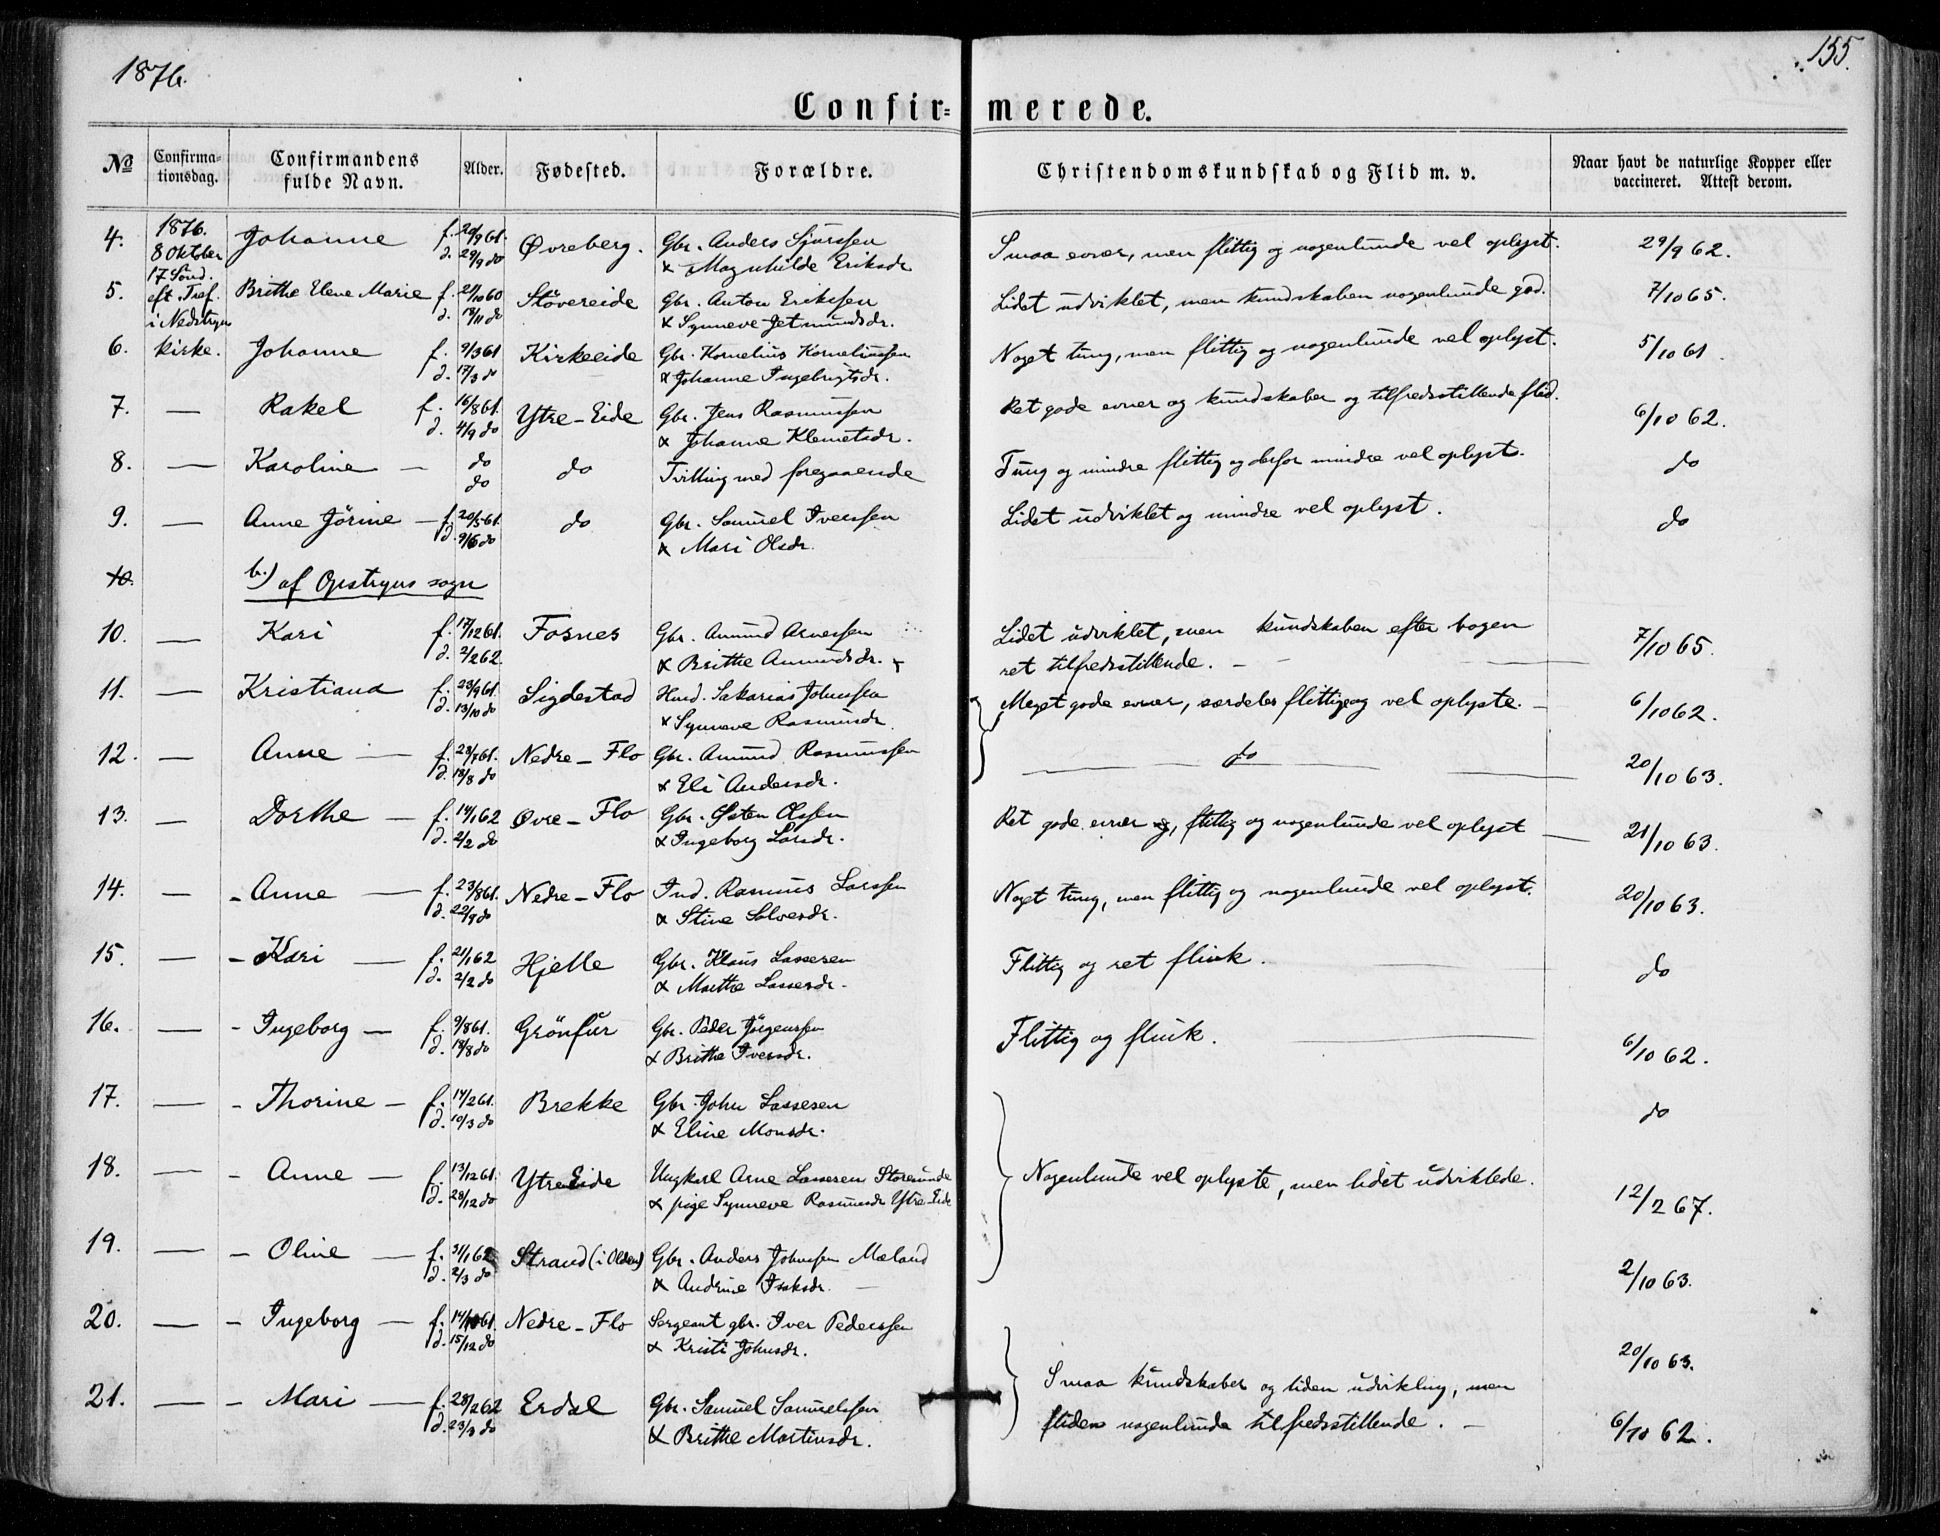 1876.
155.
Confir=merede.
No
Confirma-
tionsdag.
Confirmandens
fulde Navn.
Alder.
Fødested.
Forældre.
Christendomskundskab og Flid m. v.
Naar havt de naturlige Kopper eller
vaccineret. Attest derom.
4. 1876. Johanne f. 20/9 61. Øvreberg. Gbr. Anders Sjurssen Smaa evner, men flittig og nogenlunde vel oplyst. 29/9 62.
8 Oktober d. 29/9 do & Magnhilde Eriksdr
17 Sønd.
5. eft. Tref. Brithe Elene Marie f. 21/10 60 Støvereide Gbr. Anton Erikssen Lidet udviklet, men kundskaben nogenlunde god. 7/10 65.
i Nedstryn d. 18/11 do & Synneve Jetmundsdr.
6. kirke. Johanne f. 9/3 61 Kirkeeide Gbr. Kornelius Korneliussen Noget tung, men flittig og nogenlunde vel oplyst. 5/10 61.
d. 17/3 do & Johanne Ingebrigtsdr.
7. — Rakel f. 16/8 61. Ytre-Eide Gbr. Jens Rasmussen Ret gode evner og kundskaber og tilfredsstillende flid. 6/10 62.
d. 4/9 do & Johanne Klemetsdr.
8. — Karoline — do do Tvilling med foregaaende Tung og mindre flittig og derfor mindre vel oplyst. do
do
9. — Anne Jørine — f. 20/5 61. do Gbr. Samuel Iverssen Lidet udviklet og mindre vel oplyst. do
d. 9/6 do & Mari Olsdr.
10. b.) af Opstryns sogn
10. — Kari f. 17/12 61. Fosnes Gbr. Amund Arnessen Lidet udviklet, men kundskaben efter bogen 7/10 65.
d. 2/2 62. & Brithe Amundsdr. ret tilfredsstillende. —
11. — Kristiana f. 23/9 61. Sigdestad Hmd. Sakarias Johnssen Meget gode evner, særdeles flittige og vel oplyste. — 6/10 62.
d. 13/10 do & Synneve Rasmusdr.
12. — Anne — f. 23/7 61. Nedre-Flo Gbr. Amund Rasmussen — do — 20/10 63.
d. 18/8 do & Eli Andersdr.
13. — Dorthe — f. 14/1 62 Øvre-Flo Gbr. Østen Olssen Ret gode evner og, flittig og nogenlunde vel oplyst — 21/10 63.
d. 2/2 do & Ingeborg Larsdr.
14. — - Anne — f. 23/8 61. Nedre-Flo Ind. Rasmus Larssen Noget tung, men flittig og nogenlunde vel oplyst. 20/10 63.
d. 22/9 do & Stine Salvesdr.
15. — - Kari — f. 21/1 62 Hjelle Gbr. Klaus Lassesen Flittig og ret flink. — do
d. 2/2 do & Marthe Lassesdr.
16. — - Ingeborg — f. 9/8 61. Grønfur Gbr. Peder Jørgenssen Flittig og flink. — 6/10 62.
d. 18/8 do & Brithe Iversdr.
17. — - Thorine — f. 14/2 61. Brekke Gbr. John Lassesen do
d. 10/3 do & Eline Monsdr.
18. — - Anne — f. 13/12 61. Ytre Eide Ungkarl Arne Lassesen Storesunde Nogenlunde vel oplyste, men lidet udviklede. 12/2 67.
d. 28/12 do & pige Synneve Rasmusdr Ytre-Eide
19. — - Oline — f. 31/1 62 Strand (i Olden) Gbr. Anders Johnssen Mæland 2/10 63.
d. 2/3 do & Andrine Isaksdr. —
20. — - Ingeborg — f. 14/10 61. Nedre-Flo Sergeant gbr. Iver Pederssen 20/10 63.
d. 15/12 do & Kristi Johnsdr.
21. — - Mari — f. 28/2 62 Erdal Gbr. Samuel Samuelssen Smaa kundskaber og liden udvikling, men
d. 23/3 do & Brithe Martinsdr. fliden nogenlunde tilfredsstillende. — 6/10 62.